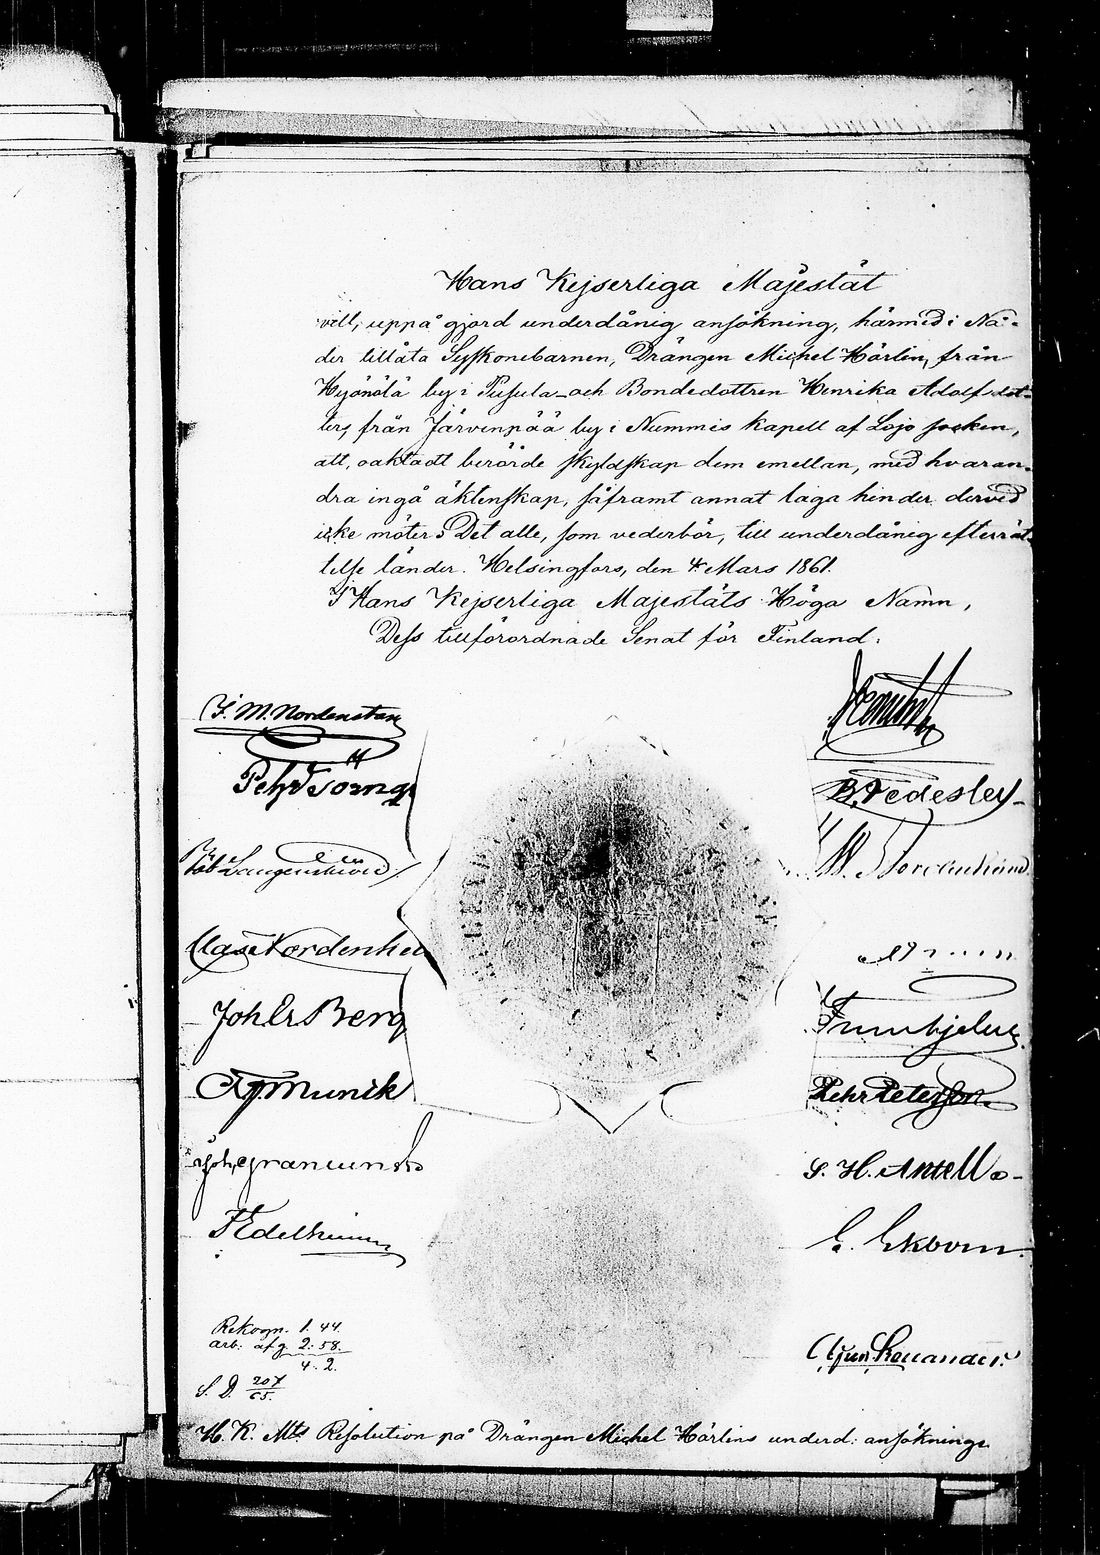 Hans Kejserliga Majestät
vill, uppå gjord underdånig ansökning, härmed i Nå-
der tillåta Syskonebarnen, Drängen Michel Härlin, från
Hyönölä by i Pusula och Bondedottren Henrika Adolfsdot-
ter, från Järvenpää by i Nummis kapell af Lojo socken,
att, oaktadt berörde skyldskap dem emellan, med hvaran-
dra ingå äktenskap, såframt annat laga hinder dervid
icke möter; Det alle, som vederbör, till underdånig efterrät-
telse länder. Helsingfors, den 4 Mars 1861.
I Hans Kejserliga Majestäts Höga Namn,
Dess tillförordnade Senat för Finland:
J. M. Nordenstam
Pehr Törnq
B. Federley
Rob Langenskiöld
Clas Nordenhei
Joh Er Berg
Pehr Peterson
Af Munck
Joh. Granlund
S. H. Antell
F Edelheim
E. Ekbom
Rekogn. 1. 44.
arb. afg. 2. 58.
4. 2.
S. D. 207/65.
H. K. Mts Resolution på Drängen Michel Härlins underd: ansökning